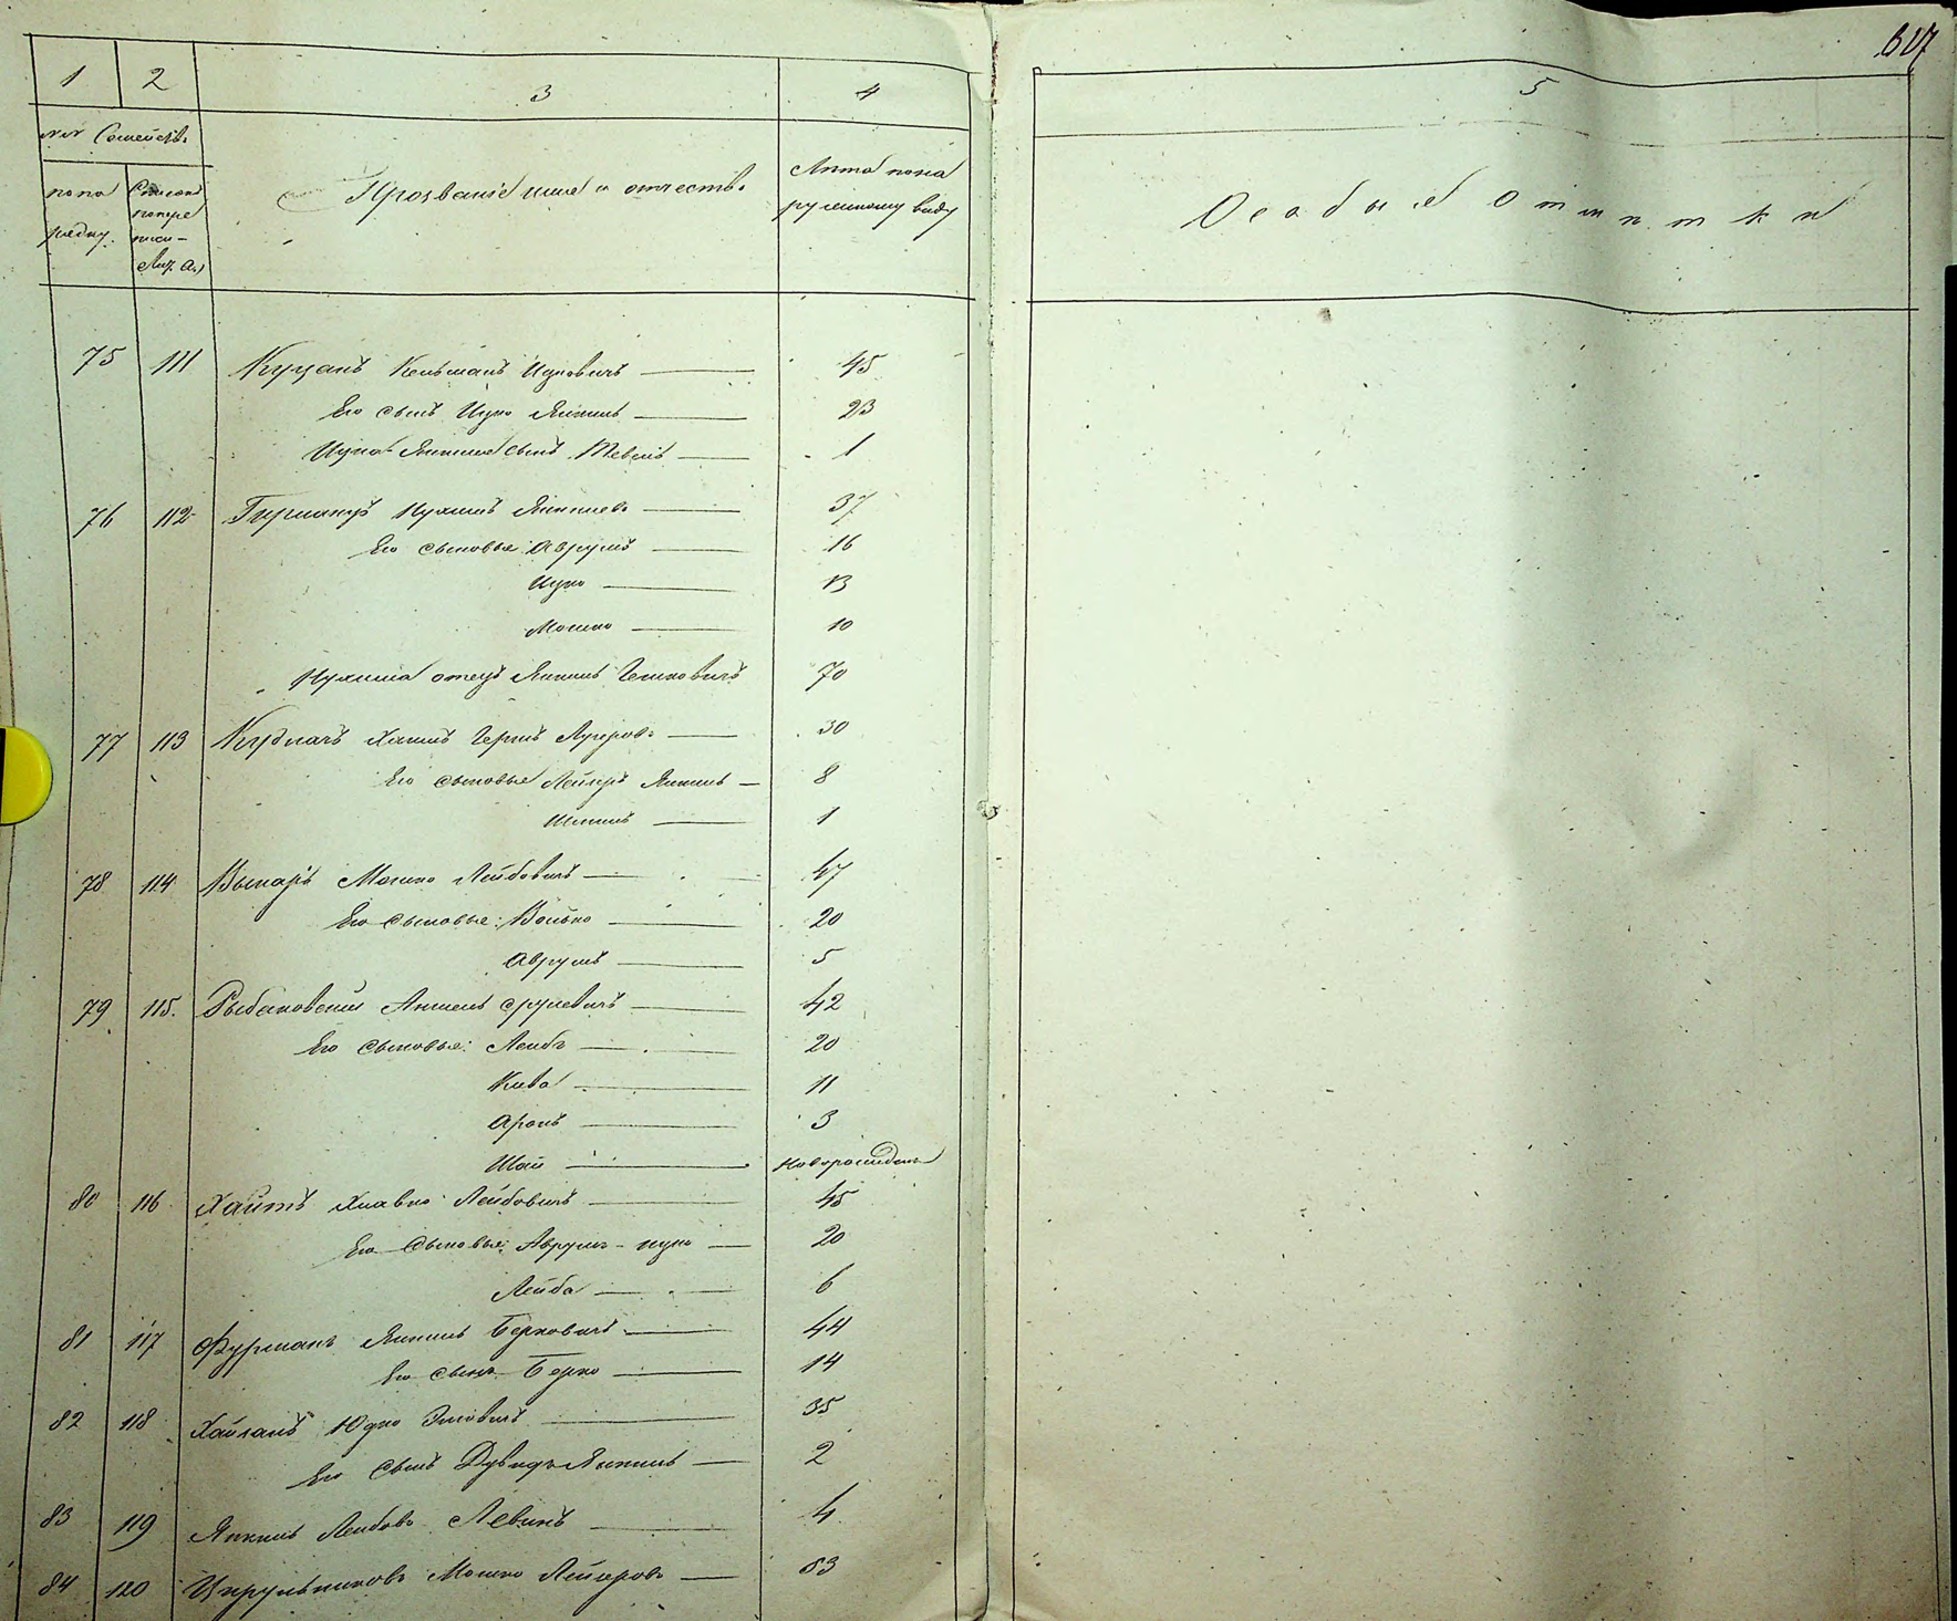 617
1 2 3 4 5
№№ Семейств.
по по рядку.
Списка по пере писи - Лит. а.)
Прозваніе имя и отчество.
Лѣта по на ружному виду
Особые отмѣтки
75 111 Куцанъ Кельманъ Ицковичъ — 45
Его сынъ Ицко Янкель — 23
Ицка Янкеля сынъ — 1
76 112 Нухимъ Янкелев. — 37
Его сыновья: Аврумъ — 16
Ицко — 13
Мошко — 10
Нухима отецъ Янкель — 70
77 113 Кудлачъ Хаимъ Гершъ — 30
Его сыновья Лейзеръ Янкель — 8
1
78 114 Мошко Лейбовичъ — 47
Его сыновья: Волько — 20
Аврумъ — 5
79 115. Рыбаковский Аншель Срулевичъ — 42
Его сыновья: Лейба — 20
Кива — 11
Аронъ — 3
Шая — новорожден
80 116 Хаитъ Хлавно Лейбовичъ — 45
Его сыновья: Аврумъ-ицко — 20
Лейба — 6
81 117 Фурманъ Янкель Берковичъ — 44
Его сынъ Берко — 14
82 118 Юдко — 35
Его сынъ Дувидъ Янкель — 2
83 119 Янкель Лейбов. Левинъ — 4
84 120 Цирульников Мошко Лейзеров — 53